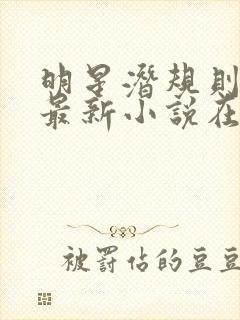 明星潛規則
最新小說在
被罰佔的豆豆